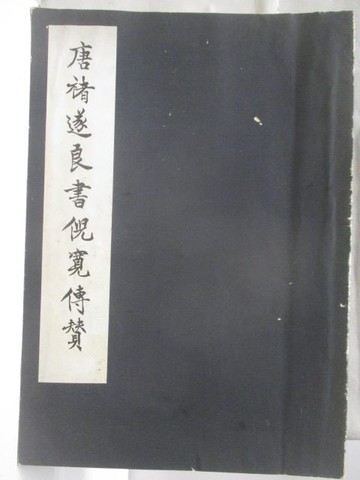 唐褚遂良書倪寬傳贊